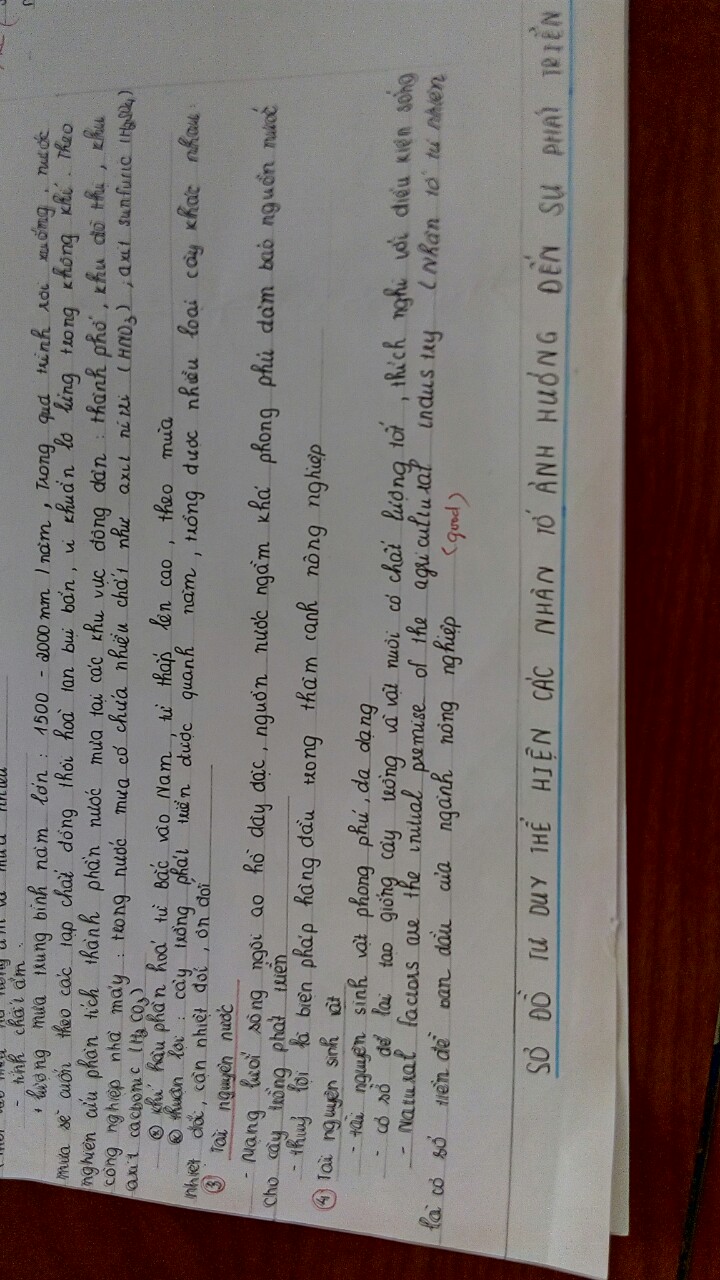 - tính chất ẩm .
+ lượng mưa trung bình năm lớn : 1500 - 2000 mm / năm , trong quá trình rơi xuống , nước
mưa sẽ cuốn theo các tạp chất đồng thời hoà tan bụi bẩn , vi khuẩn lơ lửng trong không khí . Theo
nghiên cứu phân tích thành phần nước mưa tại các khu vực đông dân : thành phố , khu đô thị , khu
công nghiệp nhà máy : trong nước mưa có chứa nhiều chất như axit nitri ( HNO3 ) , axit sunfuric (H2SO4)
axit cacbonic (H2CO3)
⊛ khí hậu phân hoá từ Bắc vào Nam, từ thấp lên cao , theo mùa
⊛ thuận lợi : cây trồng phát triển được quanh năm , trồng được nhiều loại cây khác nhau :
nhiệt đới , cận nhiệt đới , ôn đới
③ Tài nguyên nước
- Mạng lưới sông ngòi ao hồ dày đặc , nguồn nước ngầm khá phong phú đảm bảo nguồn nước
cho cây trồng phát triển
- thuỷ lợi là biện pháp hàng đầu trong thâm canh nông nghiệp
④ Tài nguyên sinh vật
- tài nguyên sinh vật phong phú , đa dạng
- cơ sở để lai tạo giống cây trồng và vật nuôi có chất lượng tốt , thích nghi với điều kiện sống
- Natural factors are the initial premise of the agricultural industry ( Nhân tố tự nhiên
là cơ sở tiền đề ban đầu của ngành nông nghiệp (good)
SƠ ĐỒ TƯ DUY THỂ HIỆN CÁC NHÂN TỐ ẢNH HƯỞNG ĐẾN SỰ PHÁT TRIỂN